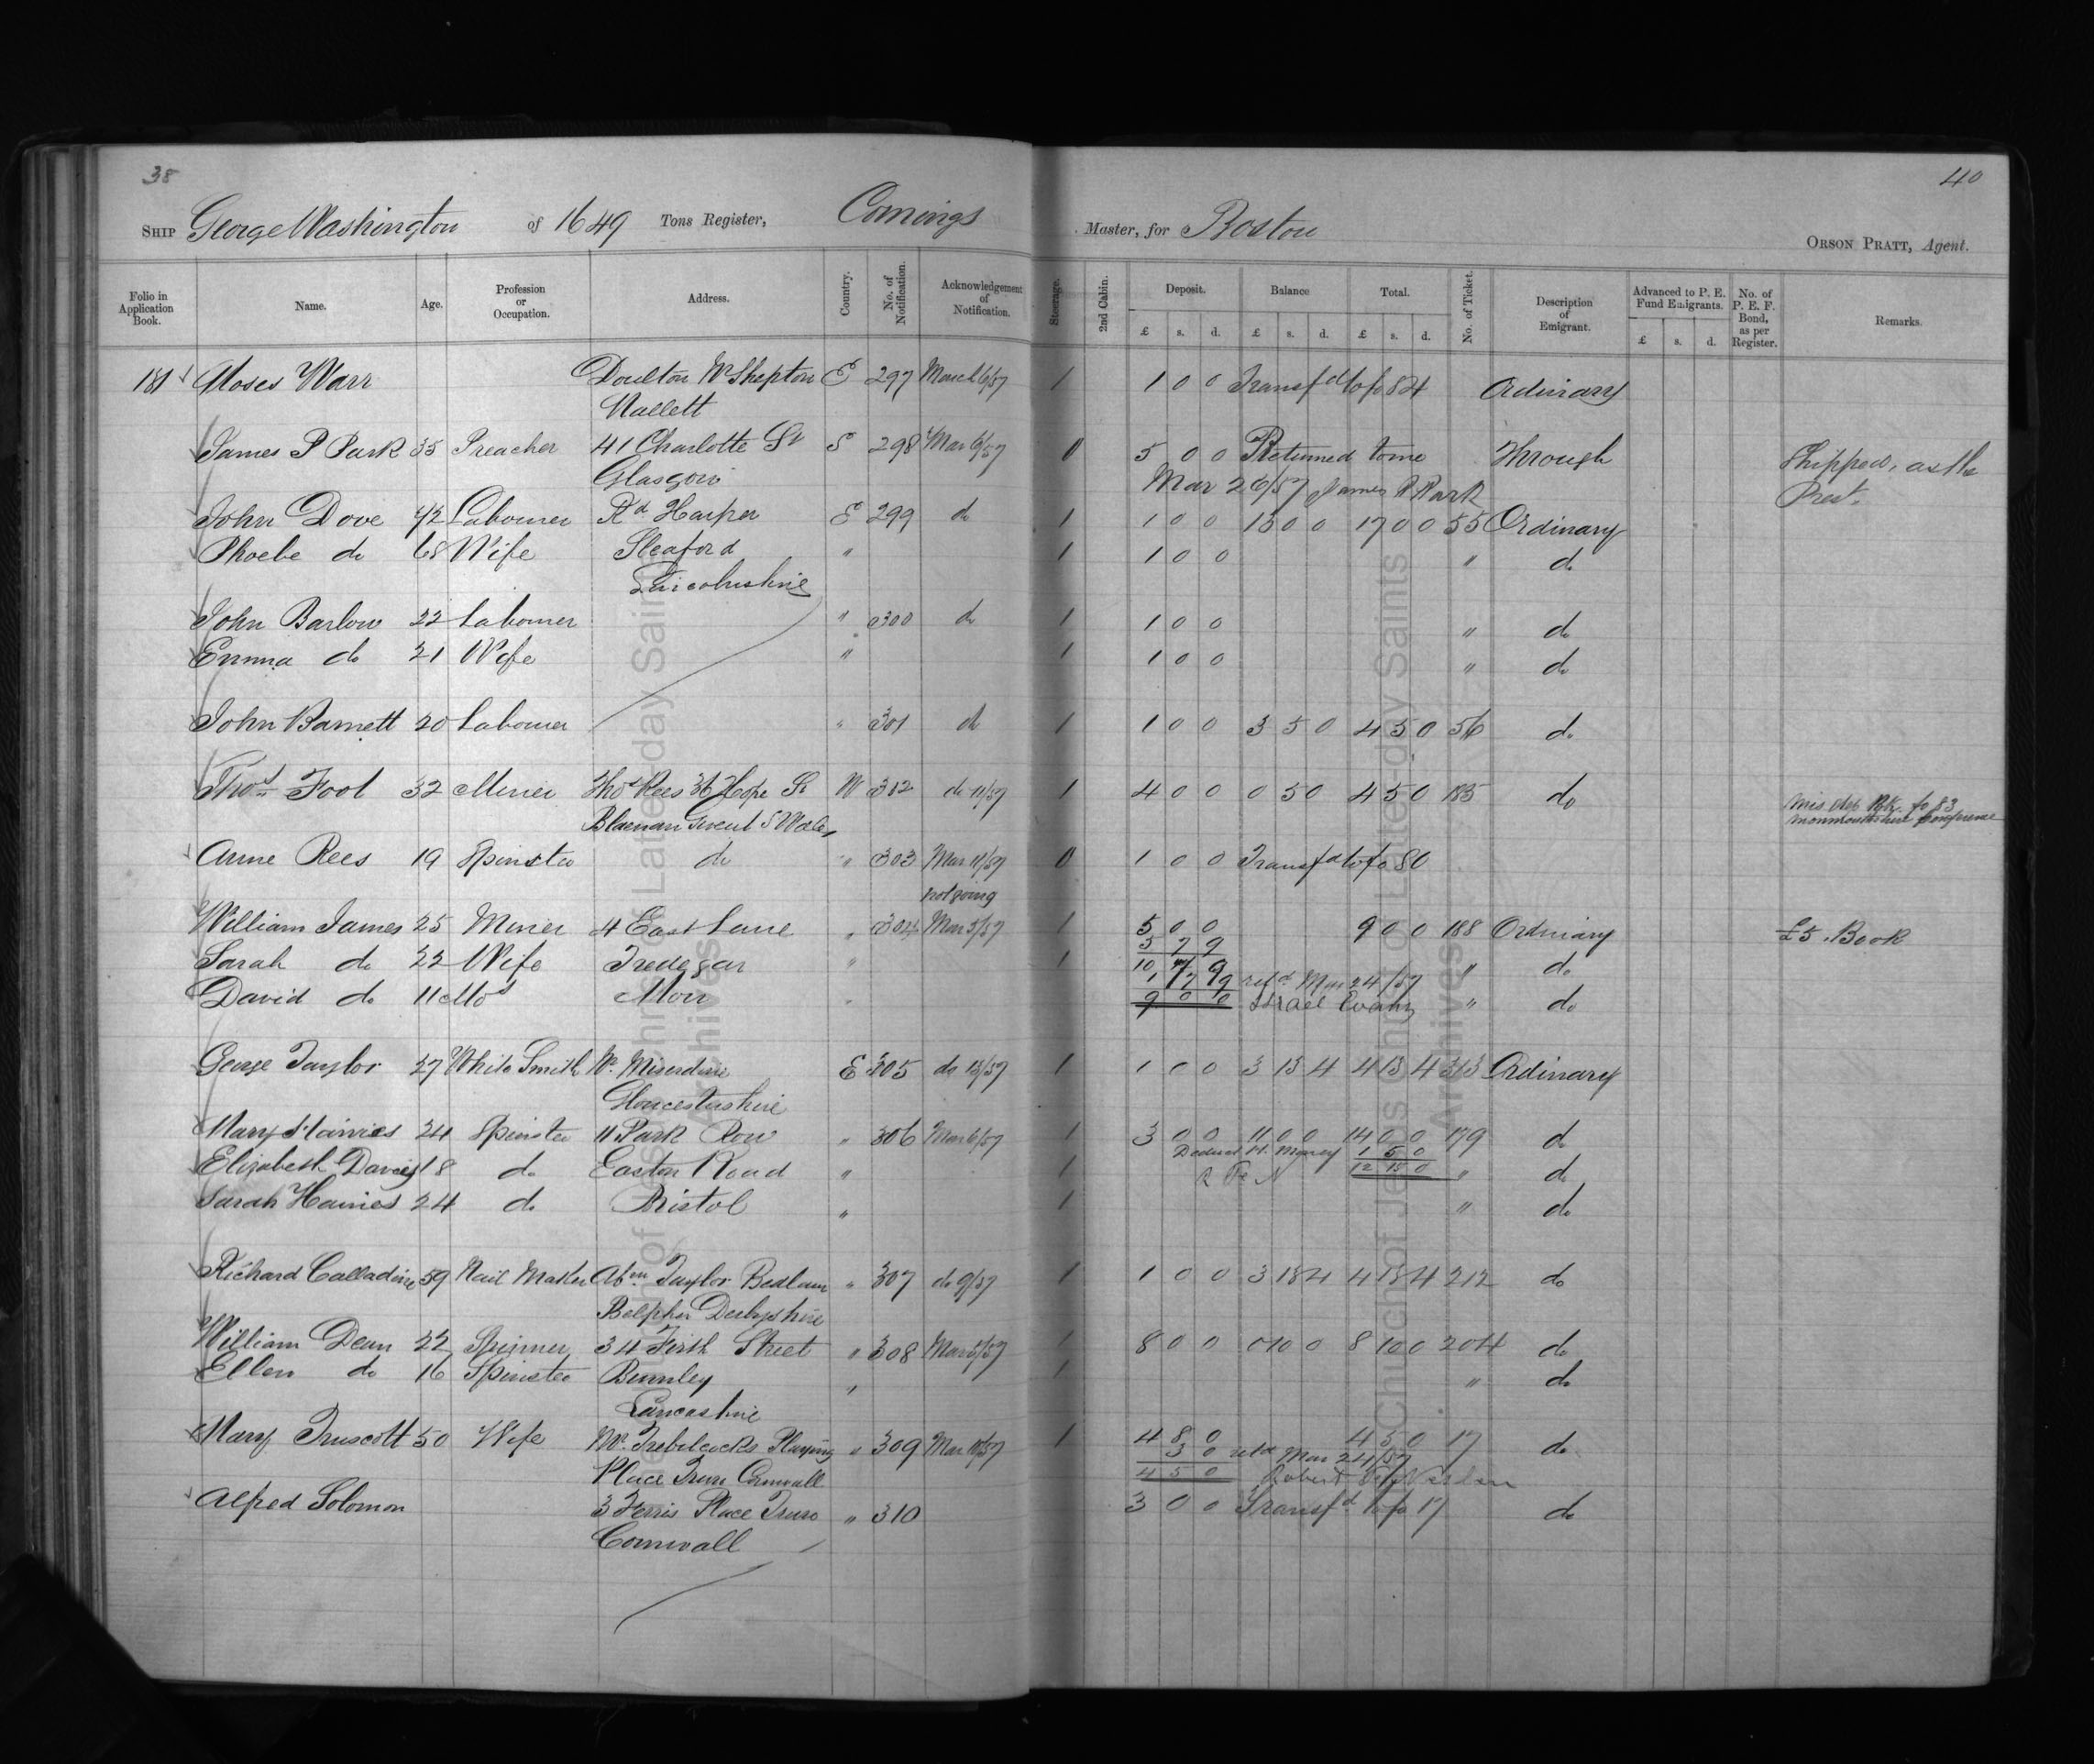 38
40
SHIP George Washington of 1649 Tons Register, Comings Master, for Boston
ORSON PRATT, Agent.
Folio in Application Book. Name. Age. Profession or Occupation. Address. Country. No. of Notification. Acknowledgement of Notification. Steerage. 2nd Cabin. Deposit. Balance Total. No. of Ticket. Description of Emigrant. Advanced to P. E. Fund Emigrants. No. of P. E. F. Bond, as per Register. Remarks.
£ s. d. £ s. d. £ s. d. £ s. d.
181 Moses Warr Doulton Nr Shepton E 297 March 6/57 1 1 0 0 Transfd to fo 84 Ordinary
Mallett
James P Park 35 Preacher 41 Charlotte St S 298 Mar 6/57 0 5 0 0 Returned to me Through Shipped, as the
Glasgow Mar 26/57 James P Park Prest.
John Dove 72 Labourer Rd Harper E 299 do 1 1 0 0 13 0 0 17 0 0 55 Ordinary
Phoebe do 68 Wife Sleaford " 1 1 0 0 " do
Lincolnshire
John Barlow 22 Labourer " 300 do 1 1 0 0 " do
Emma do 21 Wife " 1 1 0 0 " do
John Barnett 20 Labourer " 301 do 1 1 0 0 3 5 0 4 5 0 56 do
Thos Foot 32 Miner Thos Rees 36 Hope St W 302 do 11/57 1 4 0 0 0 5 0 4 5 0 185 do fo 83
Blaenau Gwent S Wales Monmouthshire Conference
Anne Rees 19 Spinster do " 303 Mar 11/57 0 1 0 0 Transfd to fo 80
not going
William James 25 Miner 4 East Lane " 304 Mar 5/57 1 5 0 0 9 0 0 188 Ordinary £5. Book
5 7 9
Sarah do 22 Wife Tredegar " 1 10 7 9 " do
1 7 9 retd Mar 24/57
David do 11 Mos Mon " 9 0 0 Israel Evans " do
George Taylor 27 White Smith Nr. Miserdine E 305 do 13/57 1 1 0 0 3 13 4 4 13 4 313 Ordinary
Gloucestershire
Mary Hainies 24 Spinster 11 Park Row " 306 Mar 6/57 1 3 0 0 11 0 0 14 0 0 179 do
Deduct H. Money 1 5 0
Elizabeth Davies 18 do Easton Road " 1 12 15 0 " do
Sarah Hainies 24 do Bristol " 1 " do
Richard Calladine 59 Nail Maker Abm Taylor Bedlam " 307 do 9/57 1 1 0 0 3 13 4 4 13 4 212 do
Belpher Derbyshire
William Dean 22 Spinner 34 Firth Street " 308 Mar 5/57 1 8 0 0 0 10 0 8 10 0 204 do
Ellen do 16 Spinster Burnley " 1 " do
Lancashire
Mary Truscott 50 Wife Mr. Trebilcocks Playing " 309 Mar 11/57 1 4 8 0 4 5 0 17 do
3 0 retd Mar 24/57
Place Truro Cornwall 4 5 0 Robert
Alfred Solomon 3 Ferris Place Truro " 310 3 0 0 Transfd to fo 17 do
Cornwall